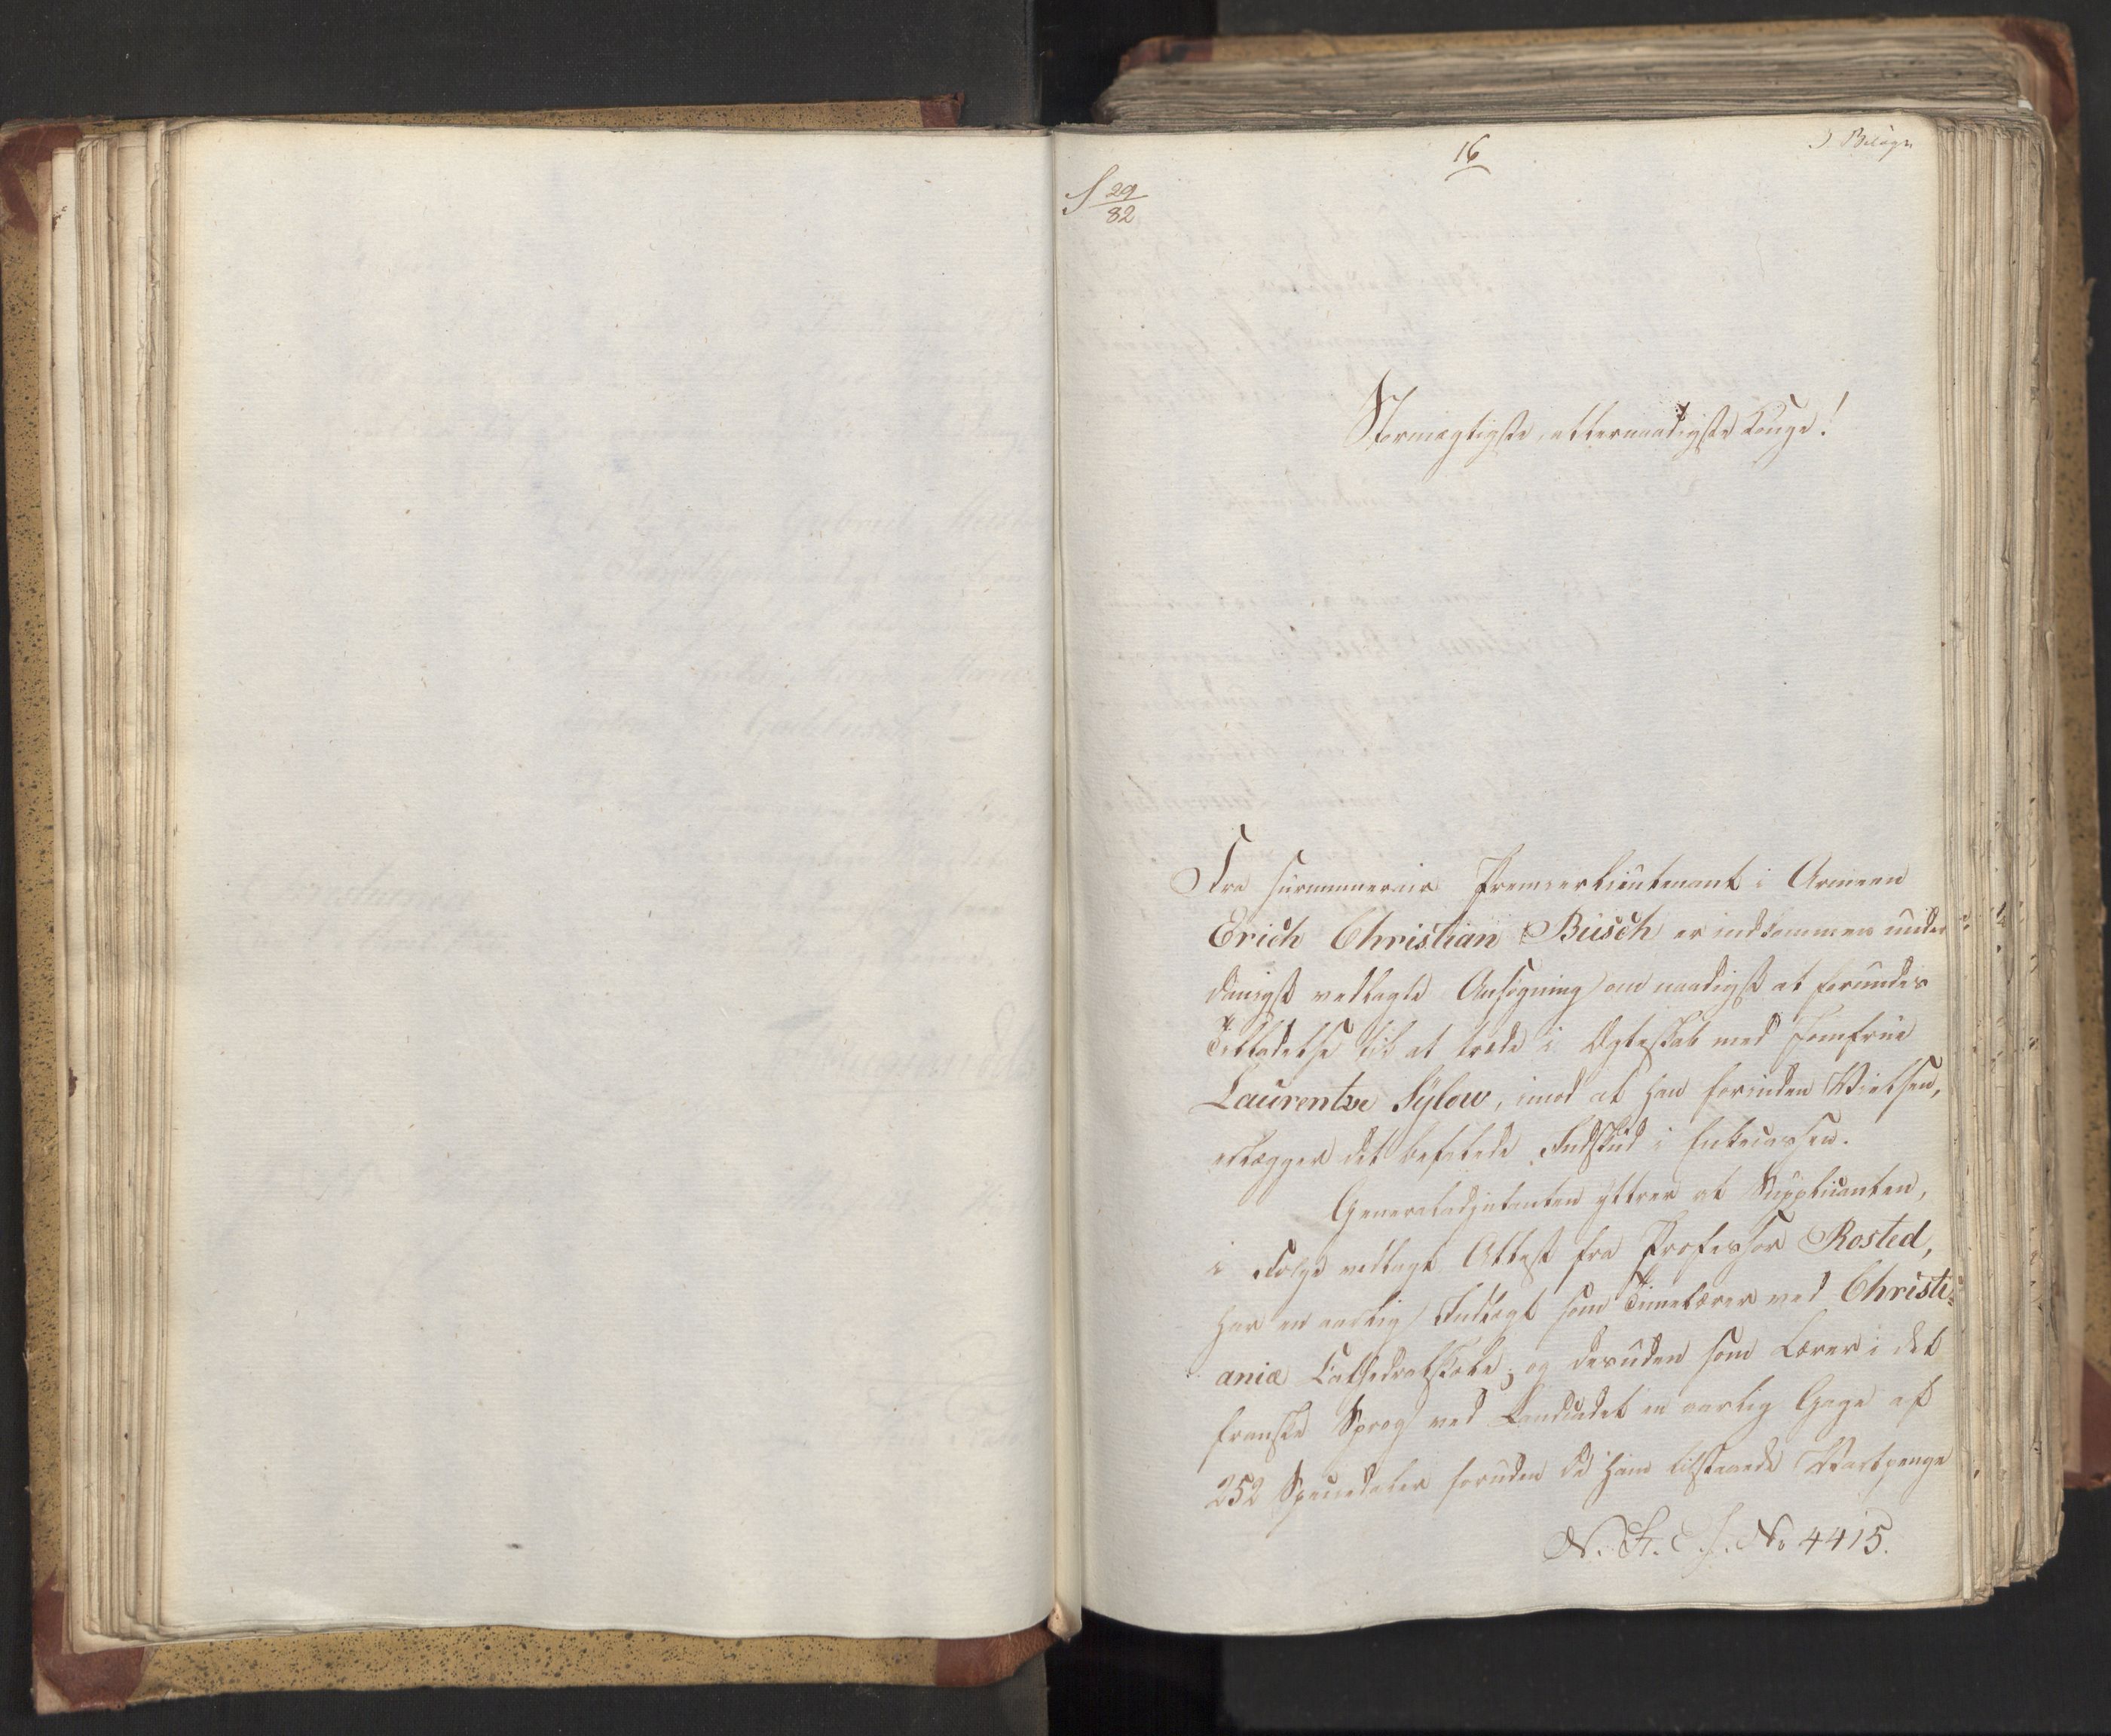 16
3 Bilage
S 29/82
Stormægtigste, allernaadigste Konge!
Fra surnumerair Premierlieutenant i Armeen
Erich Christian Büsch er indkommen under-
danigst vedlagte Ansøgning om naadigst at forundes
Tilladelse til at træde i Ægteskab med Jomfrue
Laurentze Sylow, imod at han forinden Vielsen,
erlægger det befalede Indskud i Enkecassen.
Generaladjutanten yttrer at Supplicanten,
i Følge vedlagt Attest fra Professor Rosted,
har en aarlig Indtægt som Timelærer ved Christi-
aniæ Cathedralskole, og desuden som Lærer i det
franske Sprog ved Landcadet en aarlig Gage af
252 Speciedaler foruden de ham tilstaaede Vartpenge
N. K. E. J. No 4415.